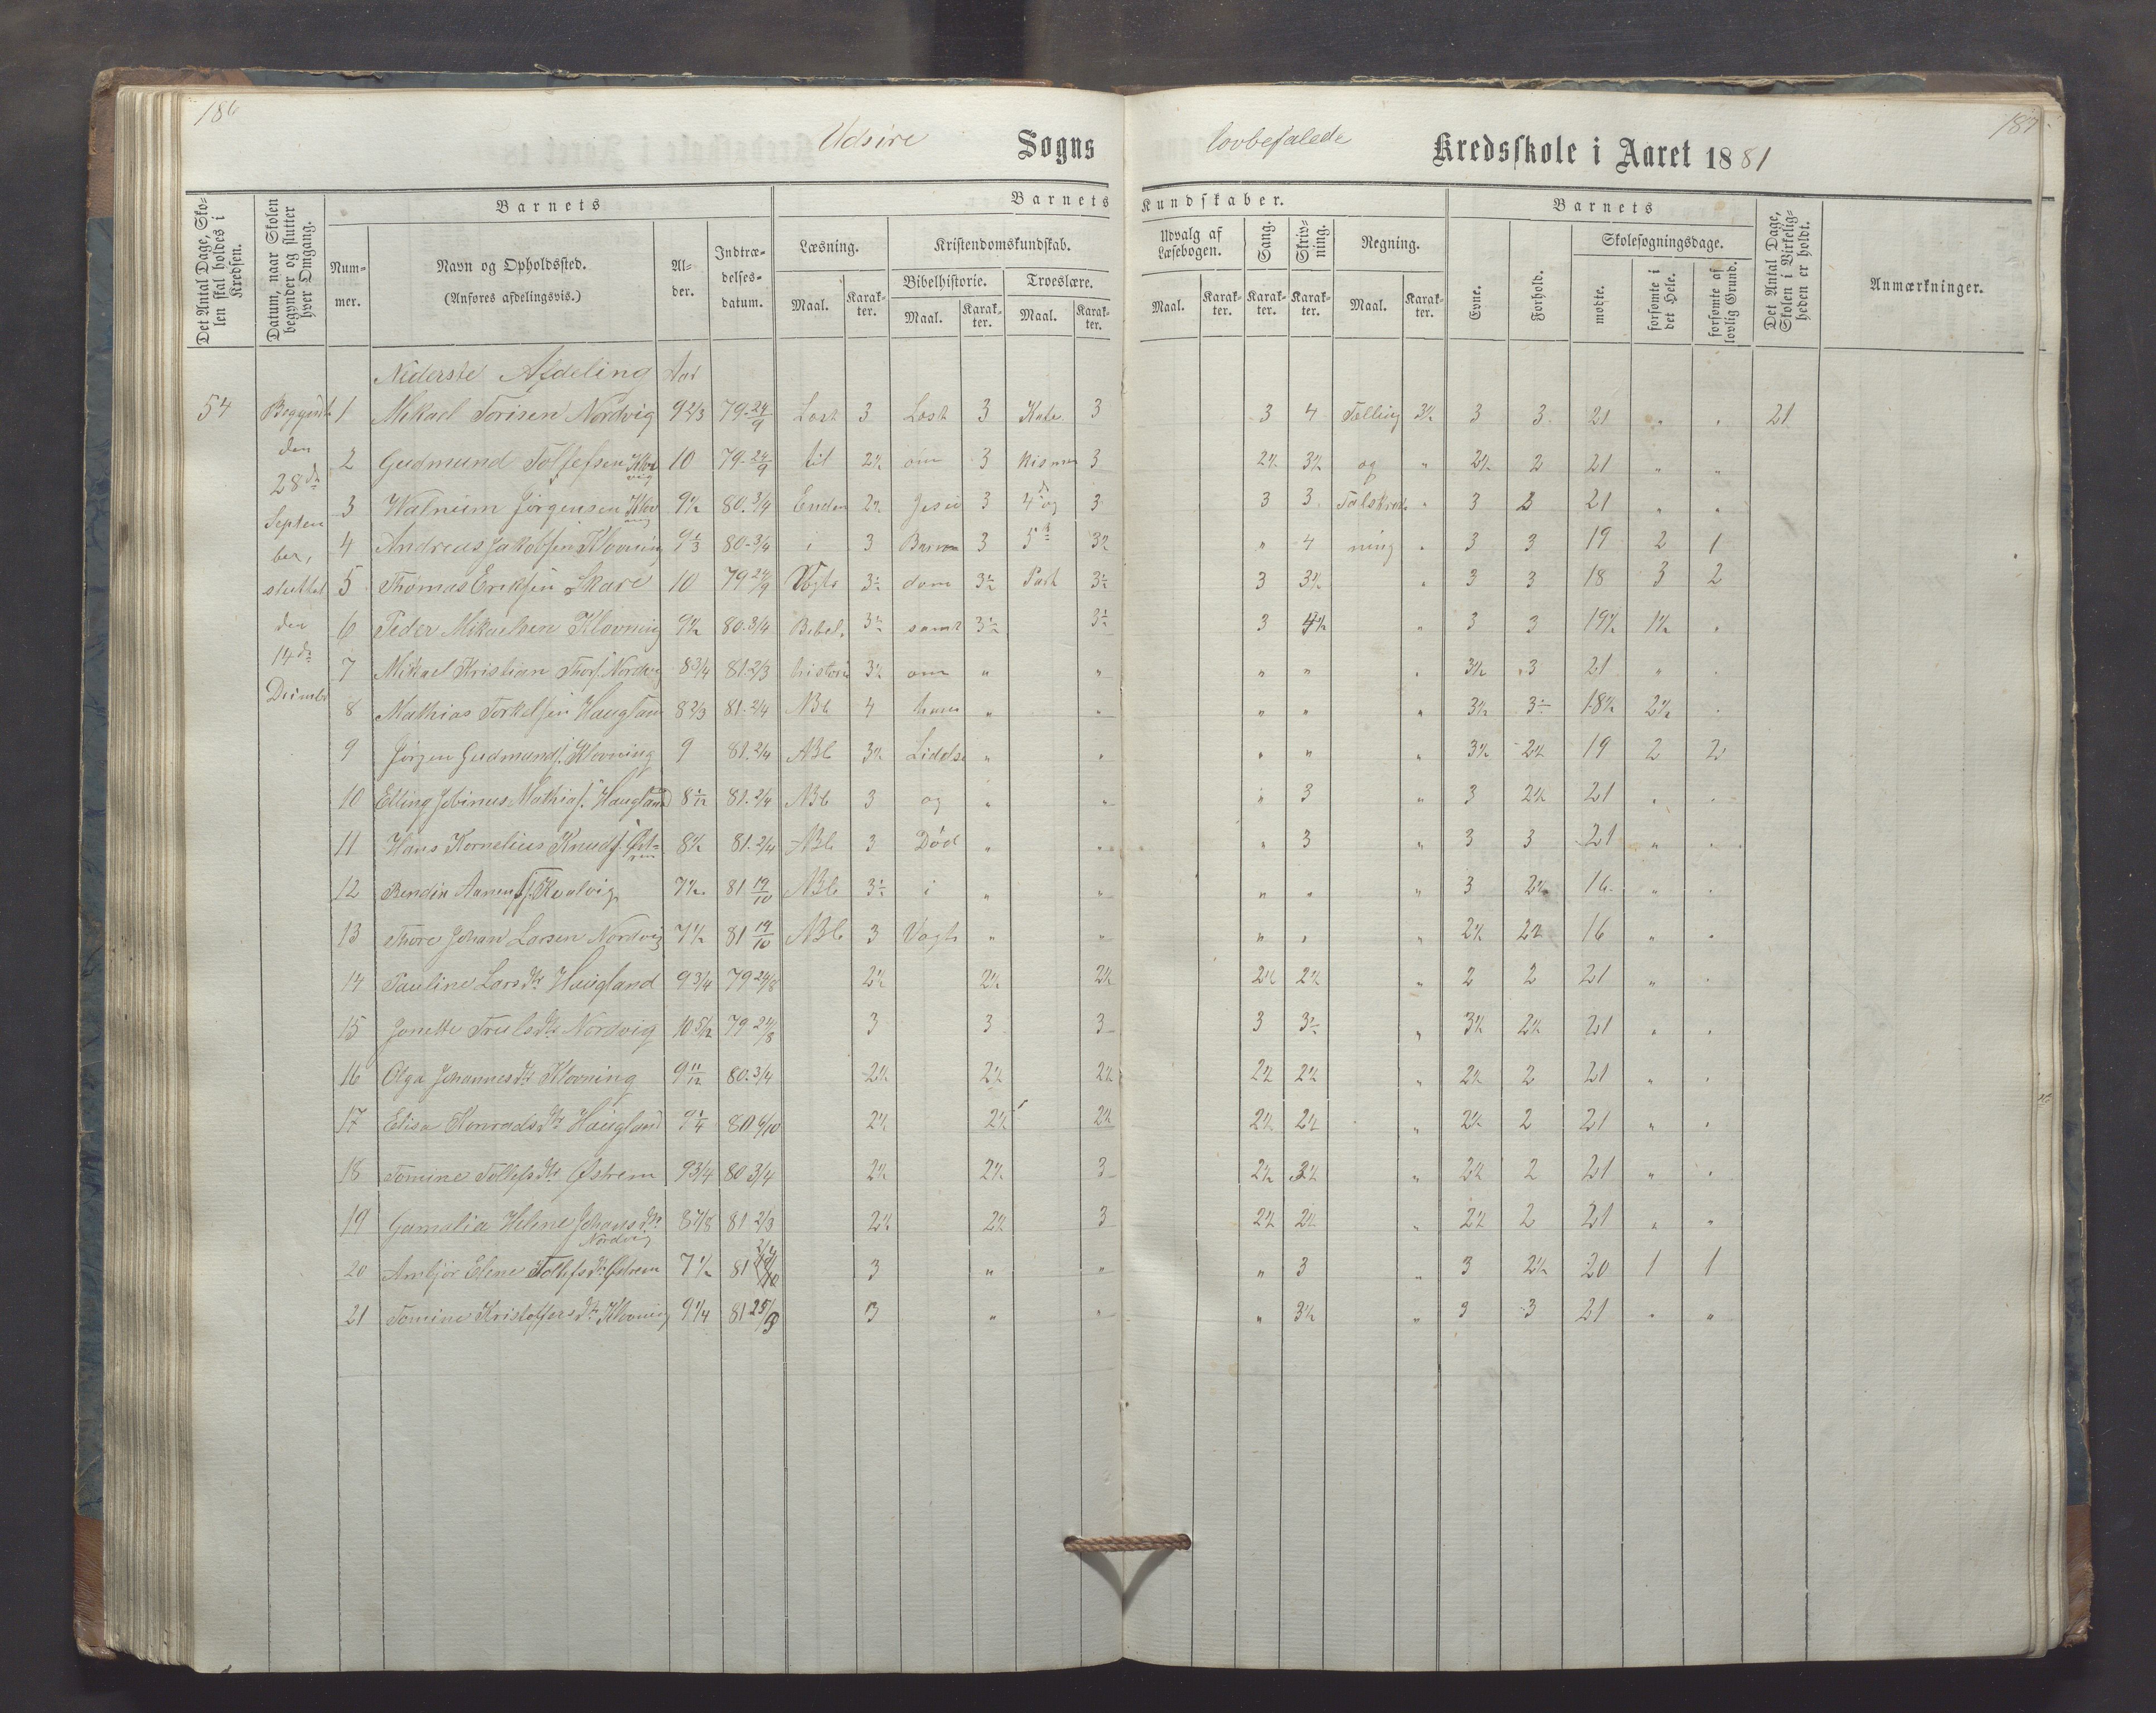 186
Udsire Sogns
lovbefalede Kredsskole i Aaret 1881
187
Det Antal Dage, Skolen skal holdes i Kredsen.
Datum, naar Skolen begynder og slutter hver Omgang.
Barnets
Nummer.
Navn og Opholdssted. (Anføres afdelingsvis.)
Alder.
Indtrædelsesdatum.
Barnets Kundskaber.
Læsning.
Maal. Karakter.
Kristendomskundskab.
Bibelhistorie. Troeslære.
Maal. Karakter. Maal. Karakter.
Udvalg af Læsebogen.
Maal. Karakter.
Sang. Karakter.
Skrivning. Karakter.
Regning.
Maal. Karakter.
Barnets
Evne.
Forhold.
Skolesøgningsdage.
mødte.
forsømte i det Hele.
forsømte af lovlig Grund.
Det Antal Dage, Skolen i Virkeligheden er holdt.
Anmærkninger.
Nederste Afdeling Aar
54 Begyndt 1 Mikael Torisen Nordvig 9 2/3 79-24/9 Læst 3 Læst 3 Kate 3 3 4 Tælling 3½ 3 3 21 " " 21
den 2 Gudmund Tollefsen Klovning 10 79-24/9 til 2½ om 3 kismen 3 2½ 3½ og " 2½ 2 21 " "
28de 3 Jørgensen Klovning 9½ 80-3/4 Enden 2½ Jesu 3 4de og 3 3 3 " 3 2 21 " "
Septem
ber, 4 Andreas Jakobsen Klovning 9 1/3 80-3/4 i 3 Barn 3 5te 3½ " 4 ning " 3 3 19 2 1
sluttet 5 Thomas Eriksen Skare 10 79 24/9 Vogts 3½ dom 3½ Part 3½ 3 3½ " 3 3 18 3 2
den 6 Peder Mikaelsen Klovning 9½ 80-3/4 Bibel 3½ samt 3½ 3½ 3 4½ " 3 3 19½ 1½ "
14de 7 Mikael Kristian Thors. Nordvig 8 3/4 81-2/3 historie 3½ om " " " " " 3½ 3 21 " "
8 Mathias Torkelsen Haugland 8 2/3 81-2/4 ABC 4 hans " " " " " 3½ 3½ 18½ 2½ "
9 Jørgen Gudmunds. Klovning 9 81-2/4 ABC 3½ Lidelse " " " " " 3½ 2½ 19 2 2
10 Elling Mathias. Haugland 81-2/4 ABC 3 og " " " 3 " 3 2½ 21 " "
11 Hans Kornelius Knuds. Østrem 8½ 81-2/4 ABC 3 Død " " " 3 " 3 3 21 " "
12 7½ 81 19/10 ABC 3½ i " " " " " 3 2½ 16 " "
13 Thore Johan Larsen Nordvig 7½ 81 19/10 ABC 3 Vogts " " " " " 2½ 2½ 16 " "
14 Pauline Larsdtr Haugland 9 3/4 79 24/8 2½ 2½ 2½ 2½ 2½ " 2 2 21 " "
15 Jonette Trulsdtr Nordvig 10 5/12 79 24/8 3 3 3 3 3½ " 3½ 2½ 21 " "
16 Olga Johannesdtr Klovning 9 11/12 80-3/4 2½ 2½ 2½ 2½ 2½ " 2½ 2 21 " "
17 Elisa Konradsdtr Haugland 9 1/4 80 6/10 2½ 2½ 2½ 2½ 2½ " 2½ 2 21 " "
18 Tomine Tollefsdtr Østrem 9 3/4 80 3/4 2½ 2½ 3 2½ 3½ " 2½ 2 21 " "
19 Gamalia Helene Johansdtr Nordvig 8 7/8 81 2/3 2½ 2½ 3 2½ 2½ " 2½ 2 21 " "
20 Elene Tollefsdtr Østrem 7½ 81 3 " " " 3 " 3 2½ 20 1 1
21 Tomine Kristoffersdtr Klovning 9 1/4 81 3 " " " 3½ " 3 3 21 " "